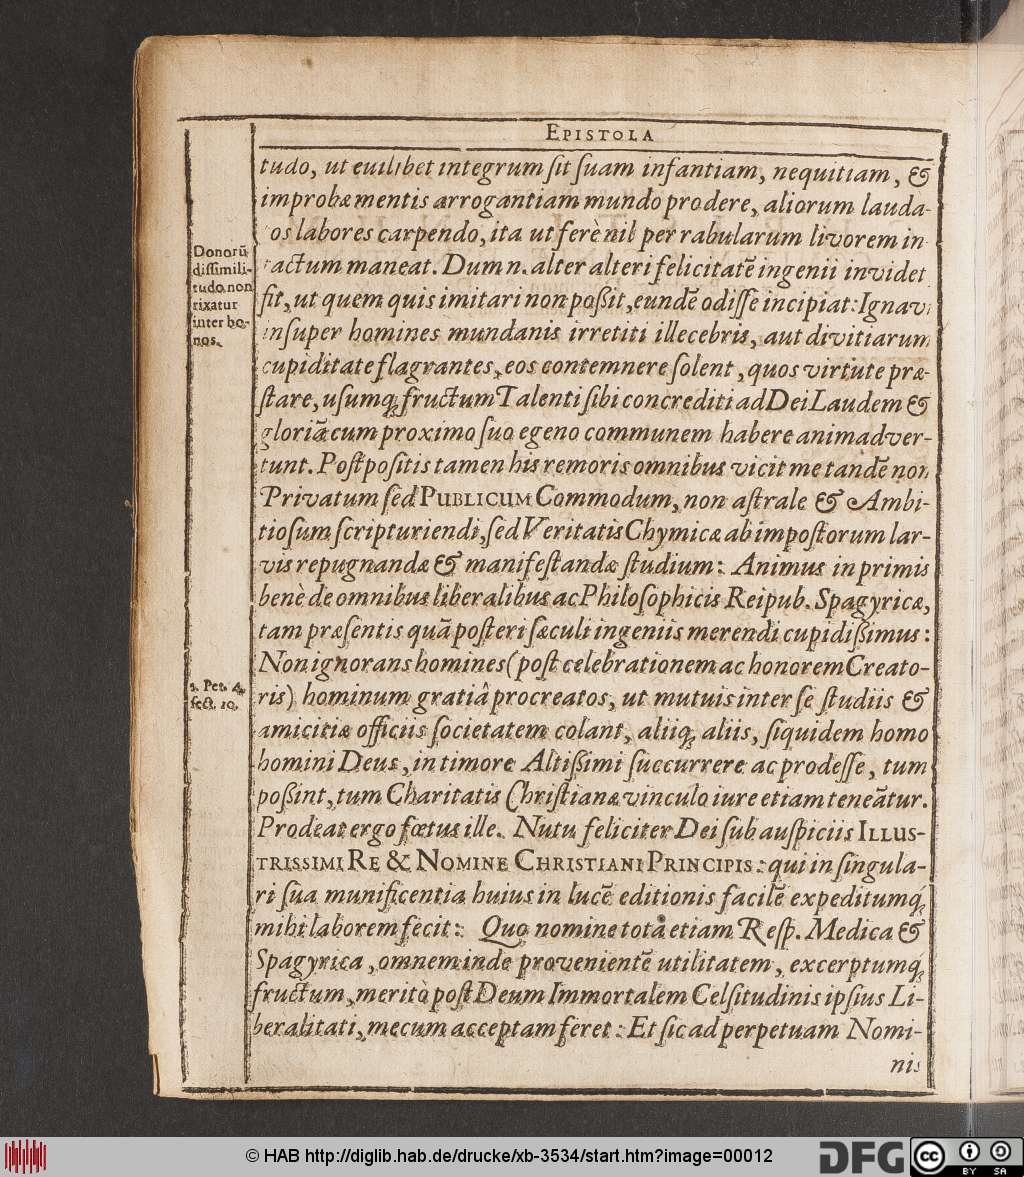 EPISTOLA
tudo, ut cuilibet integrum ſit ſuam infantiam, nequitiam, &
improbæ mentis arrogantiam mundo prodere, aliorum lauda-
os labores carpendo, ita ut ferè nil per rabularum livorem in
tactum maneat. Dum n. alter alteri felicitatē ingenii invidet
fit, ut quem quis imitari non poßit, eundē odiſſe incipiat: Ignavi
inſuper homines mundanis irretiti illecebris, aut divitiarum
cupiditate flagrantes, eos contemnere ſolent, quos virtute præ-
ſtare, uſumq; fructum Talenti ſibi concrediti ad Dei Laudem &
gloriā cum proximo ſuo egeno communem habere animadver-
tunt. Poſt poſitis tamen his remoris omnibus vicit me tandē non
Privatum ſed PUBLICUM Commodum, non aſtrale & Ambi-
tioſum ſcripturiendi, ſed Veritatis Chymicæ ab impoſtorum lar-
vis repugnandæ & manifeſtandæ ſtudium: Animus in primis
benè de omnibus liberalibus ac Philoſophicis Reipub. Spagyricæ,
tam præſentis quā poſteri ſæculi ingeniis merendi cupidißimus:
Non ignorans homines (poſt celebrationem ac honorem Creato-
ris) hominum gratiâ procreatos, ut mutuis inter ſe ſtudiis &
amicitiæ officiis ſocietatem colant, aliiq; aliis, ſiquidem homo
homini Deus, in timore Altißimi ſuccurrere ac prodeſſe, tum
poßint, tum Charitatis Chriſtianæ vinculo iure etiam teneātur.
Prodeat ergo fœtus ille. Nutu feliciter Dei ſub auſpiciis ILLUS-
TRISSIMI RE & NOMINE CHRISTIANI PRINCIPIS: qui in ſingula-
ri ſua munificentia huius in lucē editionis facilē expeditumq́;
mihi laborem fecit: Quo nomine totā etiam Reſp. Medica &
Spagyrica, omnem inde provenientē utilitatem, excerptumq́;
fructum, meritò poſt Deum Immortalem Celſitudinis ipſius Li-
beralitati, mecum acceptam feret: Et ſic ad perpetuam Nomi-
nis
Donorū
diſſimili-
tudo non
rixatur
inter bo-
nos.
1. Pet. 4.
ſect. 10.
© HAB http://diglib.hab.de/drucke/xb-3534/start.htm?image=00012
DFG
cc
BY SA